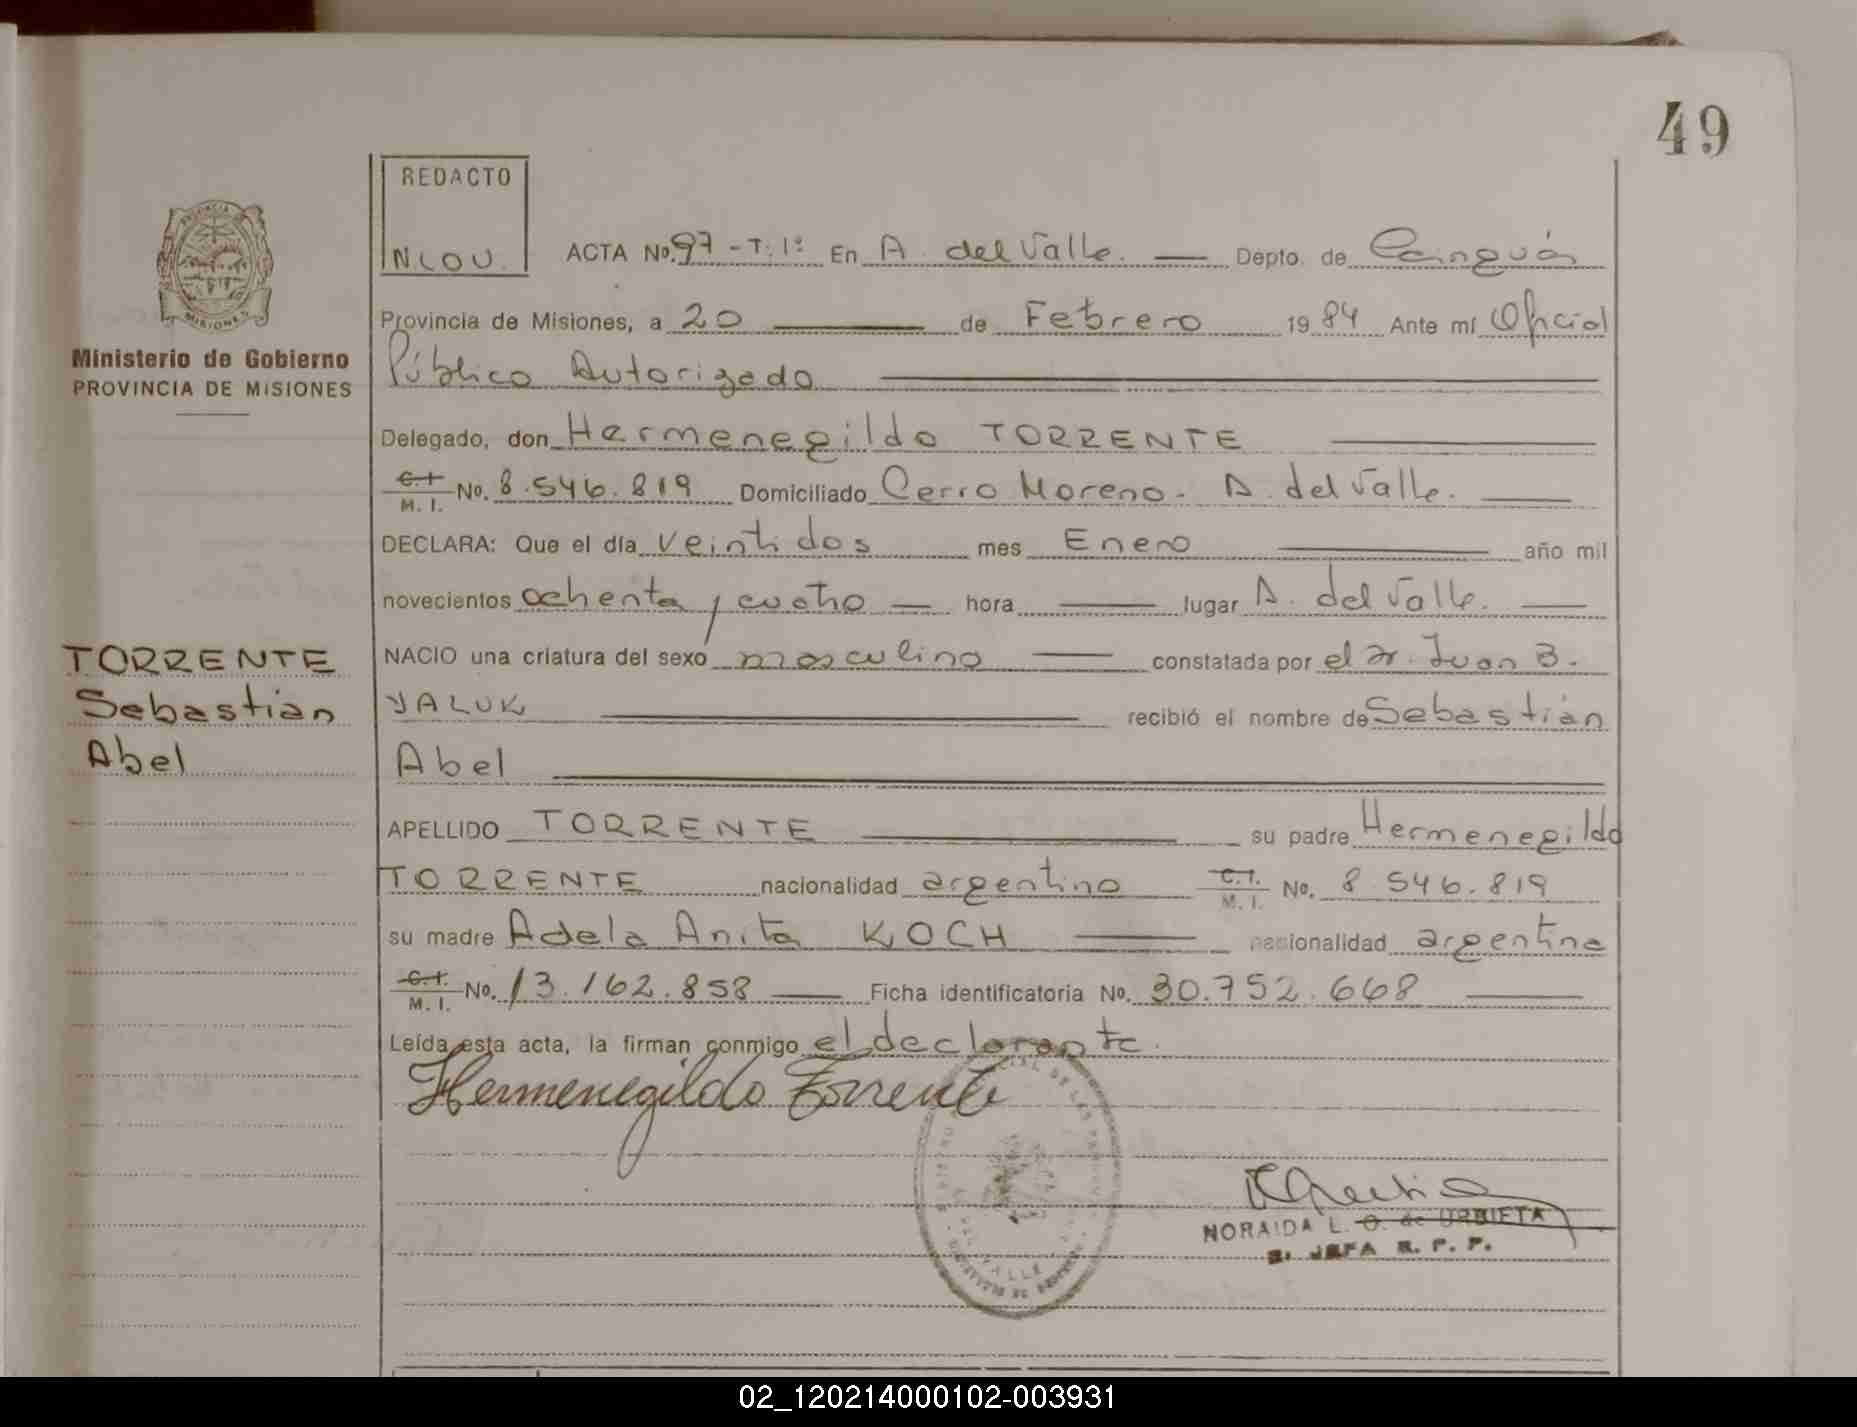 49
REDACTO
N.L.O.U.
ACTA No. 97 - T. 1º En A. del Valle. Depto. de Cainguás
Provincia de Misiones, a 20 de Febrero 1984 Ante mí Oficial
Público Autorizado
Delegado, don Hermenegildo TORRENTE
C.I. M. I. No. 8.546.819 Domiciliado Cerro Moreno - A. del Valle.
DECLARA: Que el día veintidos mes Enero año mil
novecientos ochenta y cuatro hora lugar A. del Valle.
NACIO una criatura del sexo masculino constatada por el Dr. Juan B.
YALUK recibió el nombre de Sebastián
Abel
APELLIDO TORRENTE su padre Hermenegildo
TORRENTE nacionalidad argentino C.I. M. I. No. 8.546.819
su madre Adela Anita KOCH nacionalidad argentina
C.I. M. I. No. 13.162.858 Ficha identificatoria No. 30.752.668
Leída esta acta, la firman conmigo el declarante.
Hermenegildo Torrente
NORAIDA L. O. de URBIETA
JEFA R. P. P.
PROVINCIA DE
MISIONES
Ministerio de Gobierno
PROVINCIA DE MISIONES
TORRENTE
Sebastián
Abel
02_120214000102-003931